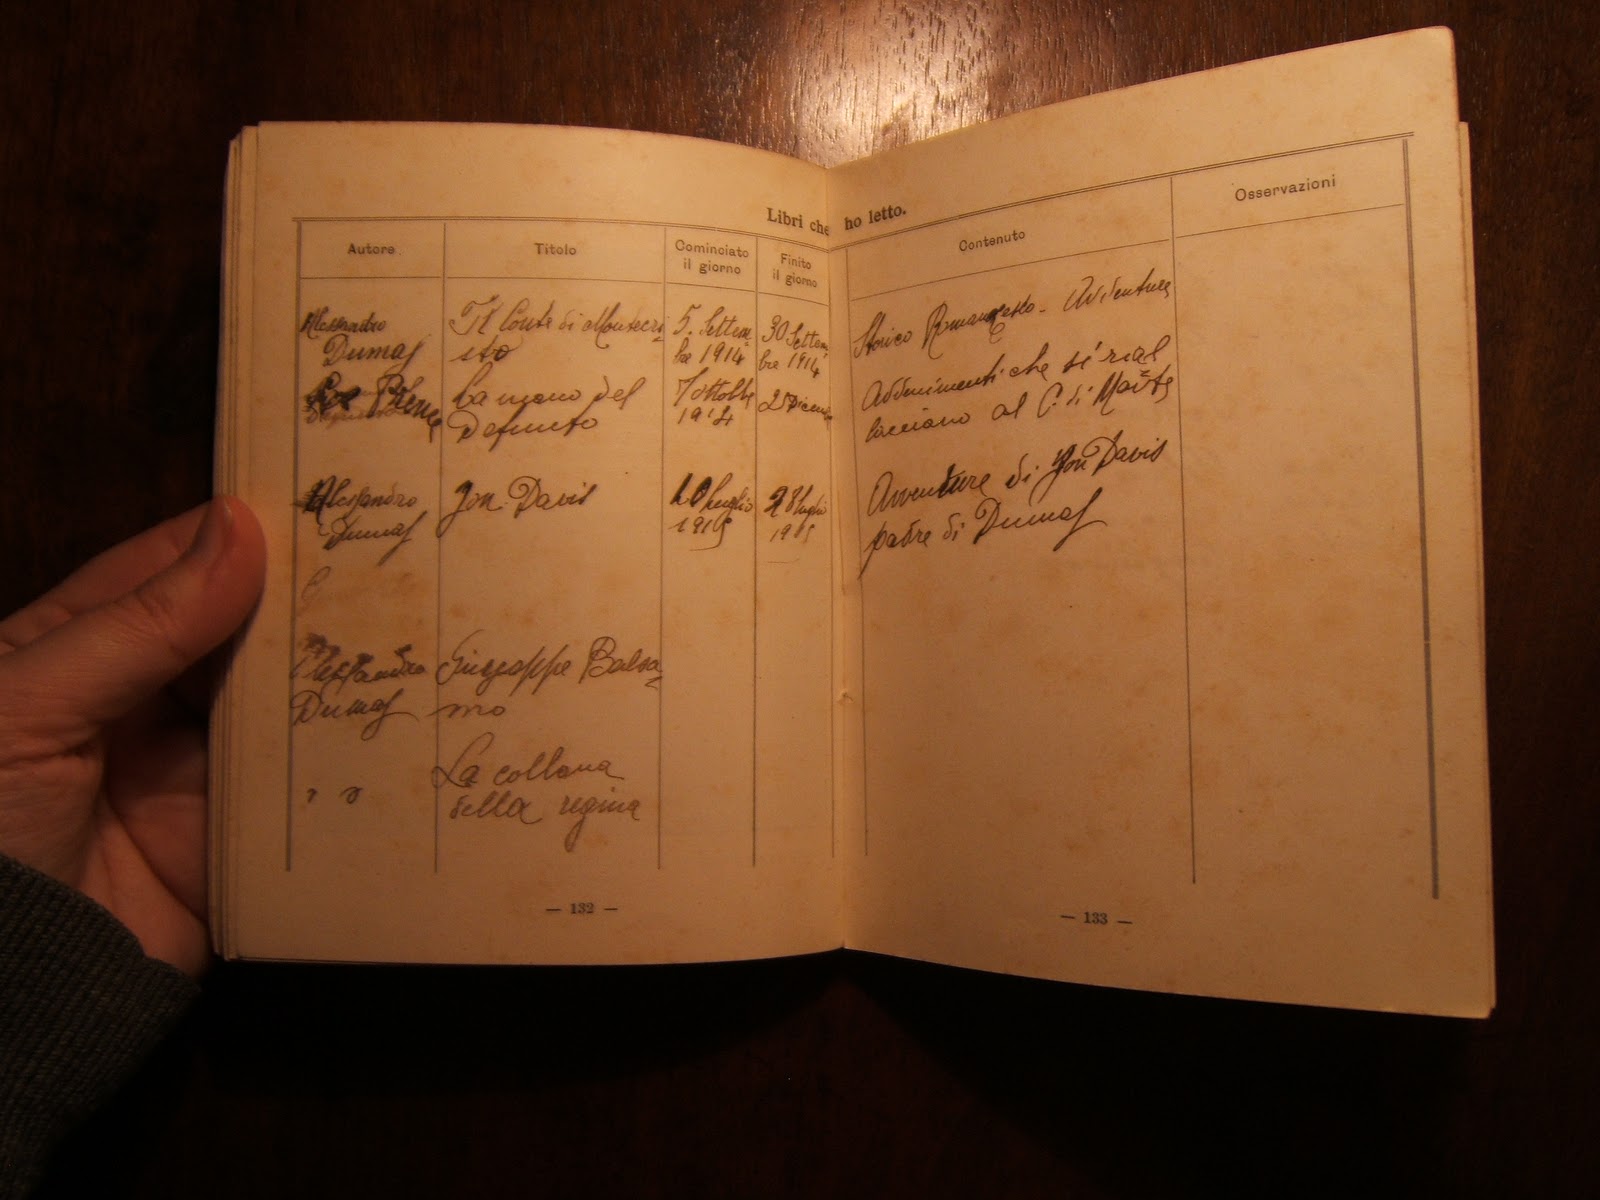 Libri che ho letto.
Autore
Titolo
Cominciato
il giorno
Finito
il giorno
Contenuto
Osservazioni
Alessandro
Dumas
Il Conte di Montecri-
sto
5. Settem-
bre 1914
30 Settem-
bre 1914
Storico Romanzesco - Avventura
La mano del
Defunto
7 ottobre
1914
25 Dicembre
Avvenimenti che si rial
lacciano al C. di Monte
Alessandro
Dumas
Jon Davis
10 luglio
1915
28 luglio
1915
Avventure di Jon Davis
padre di Dumas
Alessandro
Dumas
Giuseppe Balsa-
mo
" "
La collana
della regina
— 132 —
— 133 —